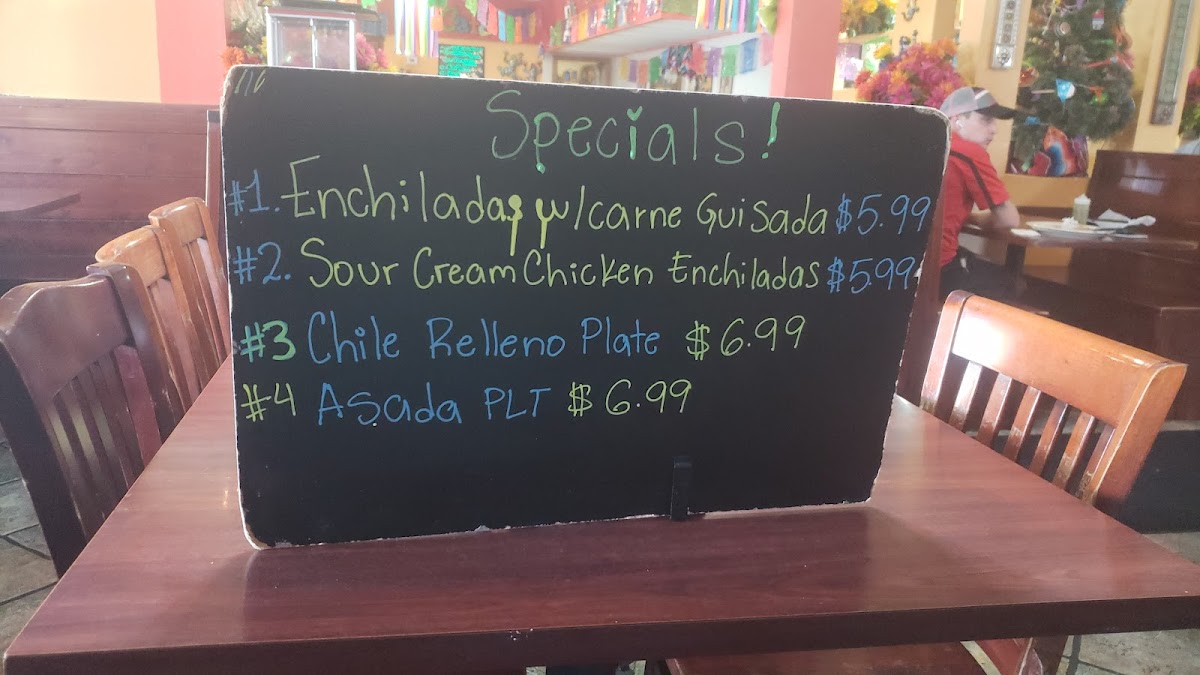 Specials!
#1. Enchiladas w/carne Guisada $5.99
#2. Sour Cream Chicken Enchiladas $5.99
#3 Chile Relleno Plate $6.99
#4 Asada PLT $6.99